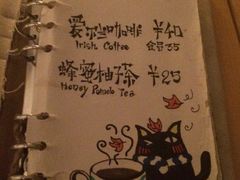 爱尔兰咖啡 ¥40
Irish Coffee 会员35
蜂蜜柚子茶 ¥25
Honey Pomelo Tea